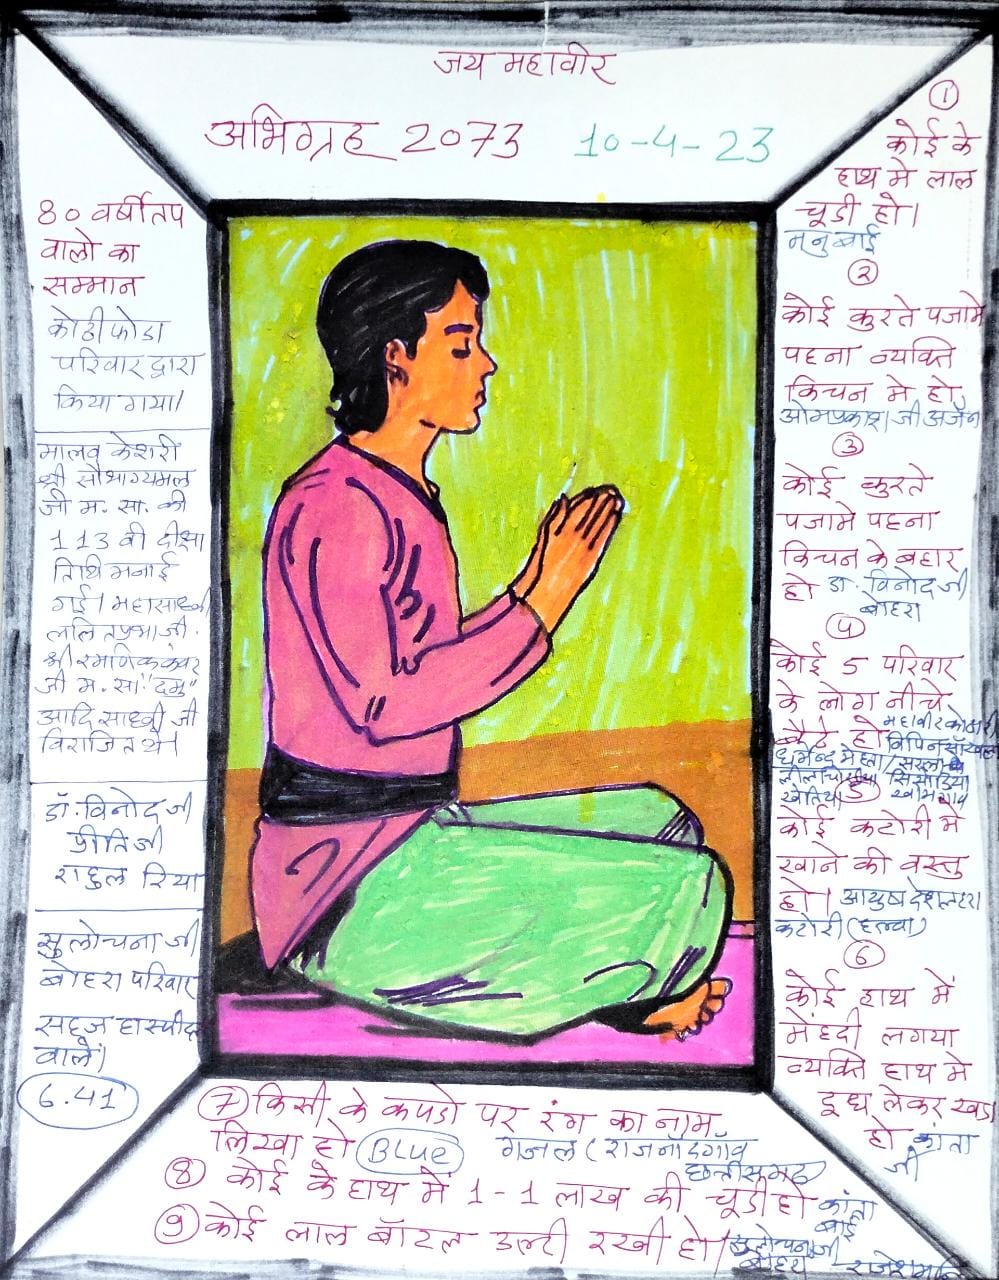 जय महावीर
अभिग्रह 2073 10-4-23
80 वर्षीतप
वालो का
सम्मान
कोठीफोडा
परिवार द्वारा
किया गया।
मालव केशरी
श्री सौभाग्यमल
जी म. सा. की
113 वी दीक्षा
तिथि मनाई
गई। महासाध्वी
ललितप्रभाजी.
श्री रमणिककंवर
जी म. सा. "दमु"
आदि साध्वी जी
विराजित थे।
डॉ. विनोद जी
प्रीति जी
राहुल रिया
सुलोचना जी
बोहरा परिवार
सहज हास्पीटल
वाले।
6.41
①
कोई के
हाथ मे लाल
चूडी हो।
मनु बाई
②
कोई कुरते पजामे
पहना व्यक्ति
किचन मे हो,
ओमप्रकाश जी
③
कोई कुरते
पजामे पहना
किचन के बहार
हो डा. विनोद जी
बोहरा
④
कोई 5 परिवार
के लोग नीचे
बैठे हो महावीर कोठारी
विपिन
धर्मेन्द्र मेहता / सरला
सिसोदिया
खेतिया
⑤
कोई कटोरी मे
खाने की वस्तु
हो। आयुष देशलहरा
कटोरी (हलवा)
⑥
कोई हाथ में
मेंहदी लगया
व्यक्ति हाथ मे
दूध लेकर खडा
हो कांता
जी
⑦ किसी के कपडो पर रंग का नाम
लिखा हो BLUE गजल (राजनांदगाँव
छत्तीसगढ
⑧ कोई के हाथ में 1-1 लाख की चूडी हो कांता
बाई
⑨ कोई लाल बॉटल उल्टी रखी हो। सुलोचना जी
बोहरा